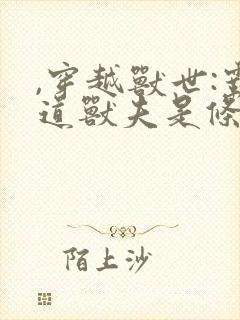 ,穿越獸世:
道獸夫是條
陌上沙